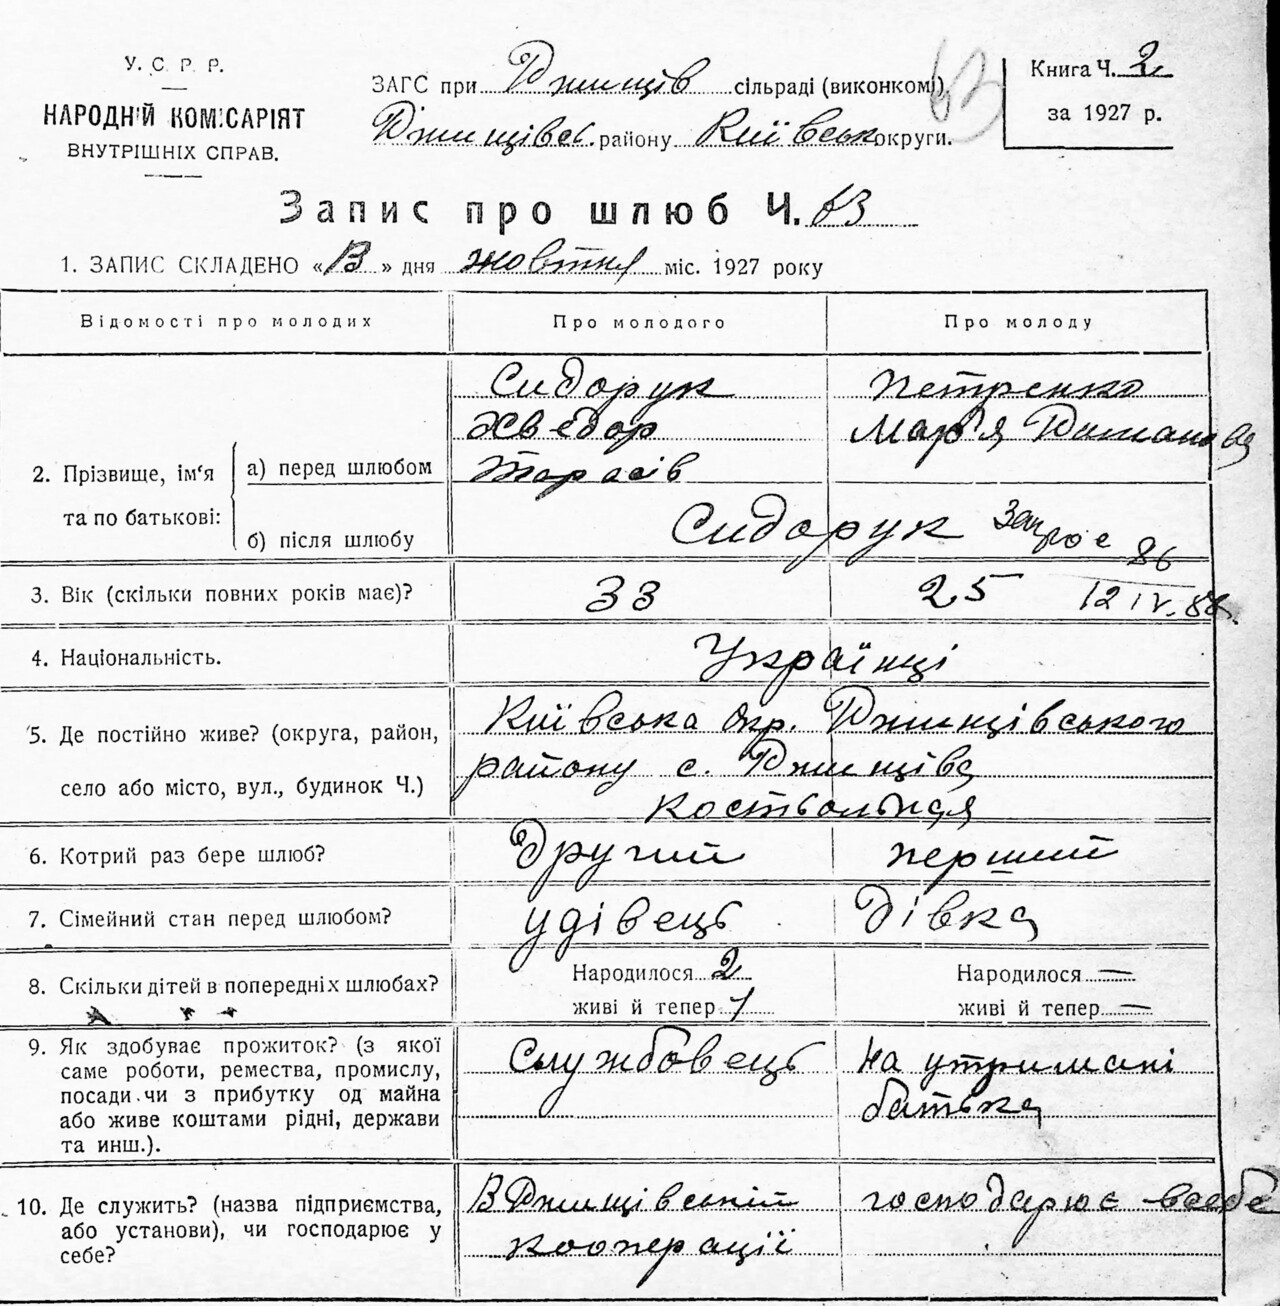 У. С. Р. Р.
НАРОДНІЙ КОМІСАРІЯТ
ВНУТРІШНІХ СПРАВ.
ЗАГС при Ржищів сільраді (виконкомі)
Ржищівсь. району Київськ округи.
63
Книга Ч. 2
за 1927 р.
Запис про шлюб Ч. 63
1. ЗАПИС СКЛАДЕНО « » дня жовтня міс. 1927 року
Відомості про молодих
Про молодого
Про молоду
2. Прізвище, ім'я та по батькові:
а) перед шлюбом
Сидорук
Хведор
Тарасів
Петренко
Мар'я
б) після шлюбу
Сидорук
Запрос 86
12 IV. 88.
3. Вік (скільки повних років має)?
33
25
4. Національність.
Українці
5. Де постійно живе? (округа, район,
село або місто, вул., будинок Ч.)
Київська окр. Ржищівського
району с. Ржищів
6. Котрий раз бере шлюб?
Другий
перший
7. Сімейний стан перед шлюбом?
удівець
Дівка
8. Скільки дітей в попередніх шлюбах?
Народилося 2
живі й тепер 1
Народилося —
живі й тепер —
9. Як здобуває прожиток? (з якої
саме роботи, ремества, промислу,
посади чи з прибутку од майна
або живе коштами рідні, держави
та инш.).
Службовець
На утримані
батька
10. Де служить? (назва підприємства,
або установи), чи господарює у
себе?
В Ржищівській
кооперації
господарює в себе